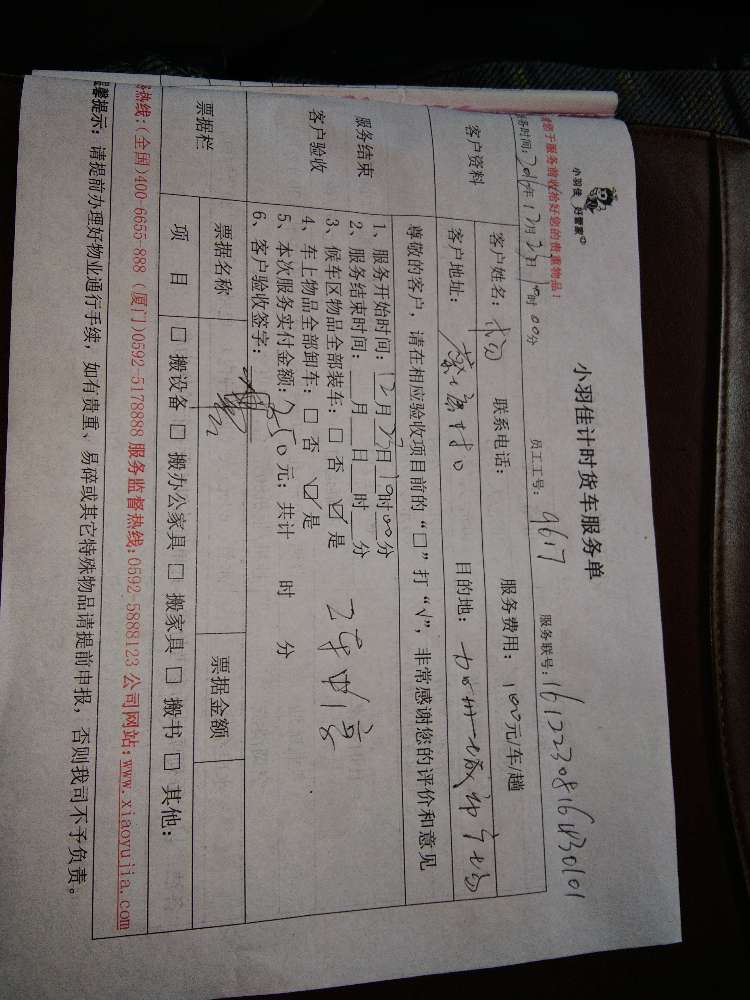 小羽佳 好管家
小羽佳计时货车服务单
于服务前收拾好您的贵重物品！
务时间：2016年12月23日 10时00分 员工工号：9617 服务联号：1612230816430101
客户资料
客户姓名： 联系电话： 服务费用：100元/车/趟
客户地址： 目的地：
尊敬的客户，请在相应验收项目前的“□”打“√”，非常感谢您的评价和意见
服务结束
客户验收
1、服务开始时间：12月23日10时00分
2、服务结束时间：__月__日__时__分
3、候车区物品全部装车：□ 否 ☑ 是
4、车上物品全部卸车：□ 否 ☑ 是
5、本次服务实付金额：元；共计 时 分
6、客户验收签字：
票据栏
票据名称 票据金额
项 目 □ 搬设备 □ 搬办公家具 □ 搬家具 □ 搬书 □ 其他：
热线：(全国)400-6655-888 (厦门)0592-5178888 服务监督热线：0592-5888123 公司网站：www.xiaoyujia.com
馨提示：请提前办理好物业通行手续，如有贵重、易碎或其它特殊物品请提前申报，否则我司不予负责。